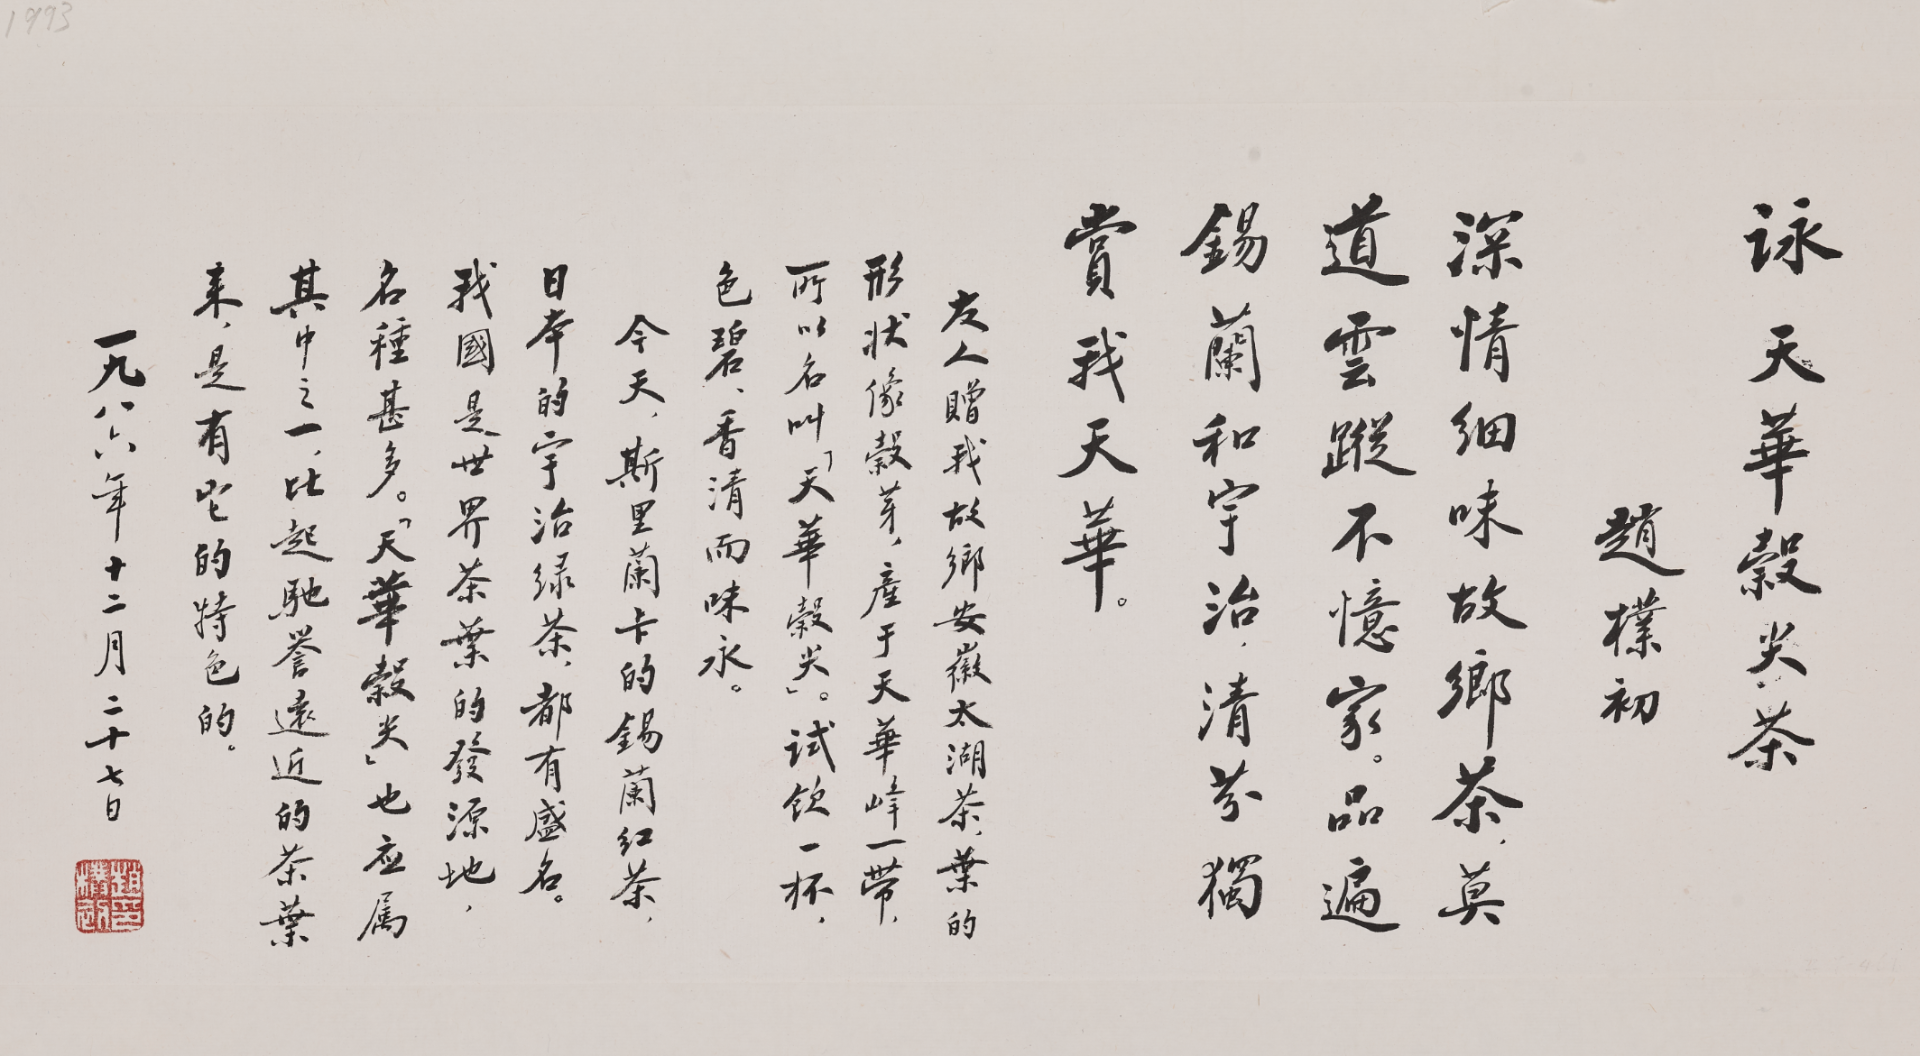 詠天華穀尖茶
趙樸初
深情細味故鄉茶，莫
道雲蹤不憶家。品遍
錫蘭和宇治，清芬獨
賞我天華。
友人贈我故鄉安徽太湖茶，葉的
形狀像穀芽，產于天華峰一帶，
所以名叫「天華穀尖」。試飲一杯，
色碧、香清而味永。
今天，斯里蘭卡的錫蘭紅茶，
日本的宇治緑茶，都有盛名。
我國是世界茶葉的發源地，
名種甚多。「天華穀尖」也应属
其中之一，比起馳譽遠近的茶葉
来，是有它的特色的。
一九八六年十二月二十七日
趙樸初印
1993